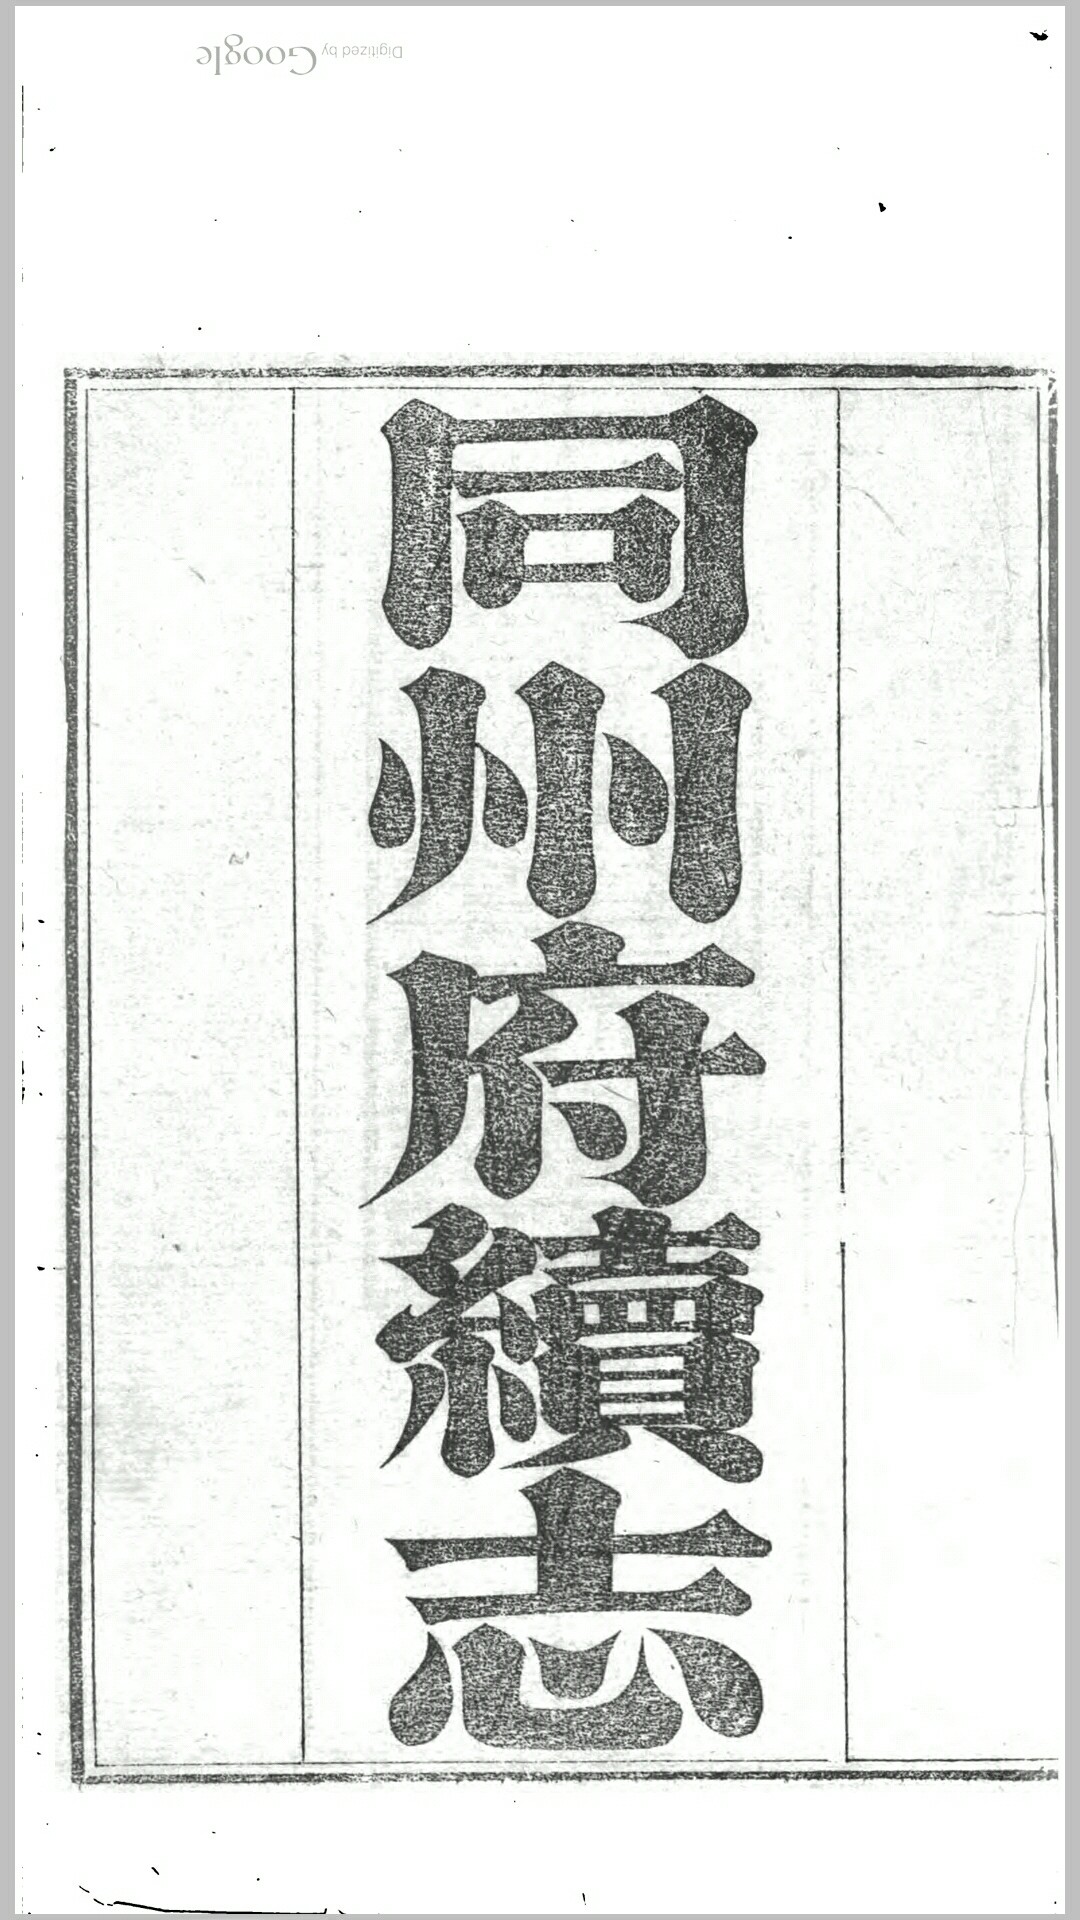 Digitized by Google
同州府續志